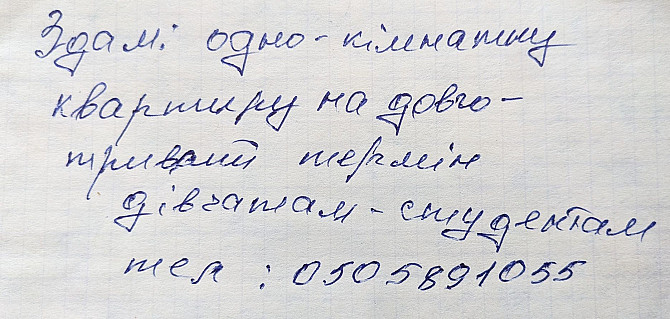 Здамі одно-кімнатну
квартиру на довго-
тривалий термін
дівчатам-студентам
тел : 0505891055